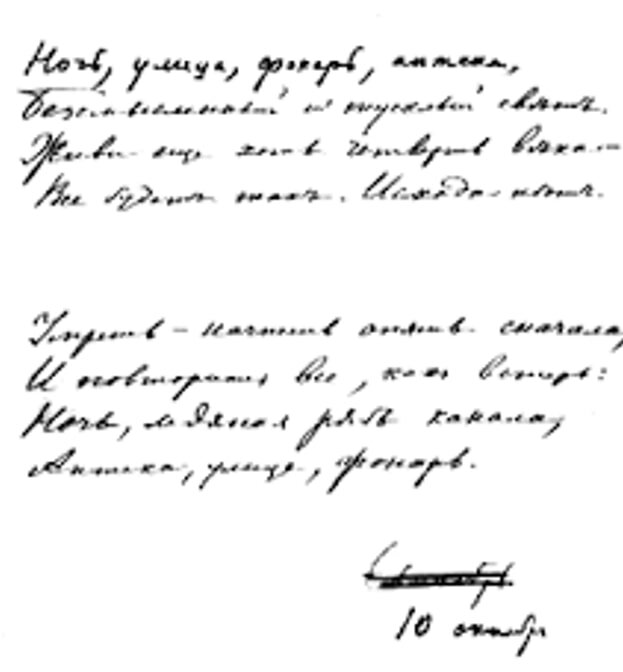 Ночь, улица, фонарь, аптека,
Безсмысленный и тусклый свѣтъ.
Живи еще хоть четверть вѣка –
Все будетъ такъ. Исхода нѣтъ.
Умрешь – начнешь опять сначала,
И повторится все, какъ встарь:
Ночь, ледяная рябь канала,
Аптека, улица, фонарь.
10 октября